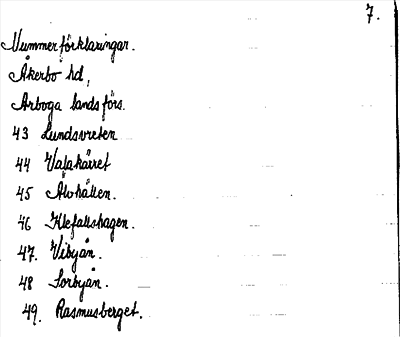 7.
Nummerförklaringar.
Åkerbo hd,
Arboga landsförs.
43 Lundsvreten
44 Valakärret
45 Älvhällen.
46 Klefallshagen.
47. Vibyån.
48 Sorbyån.
49. Rasmusberget.